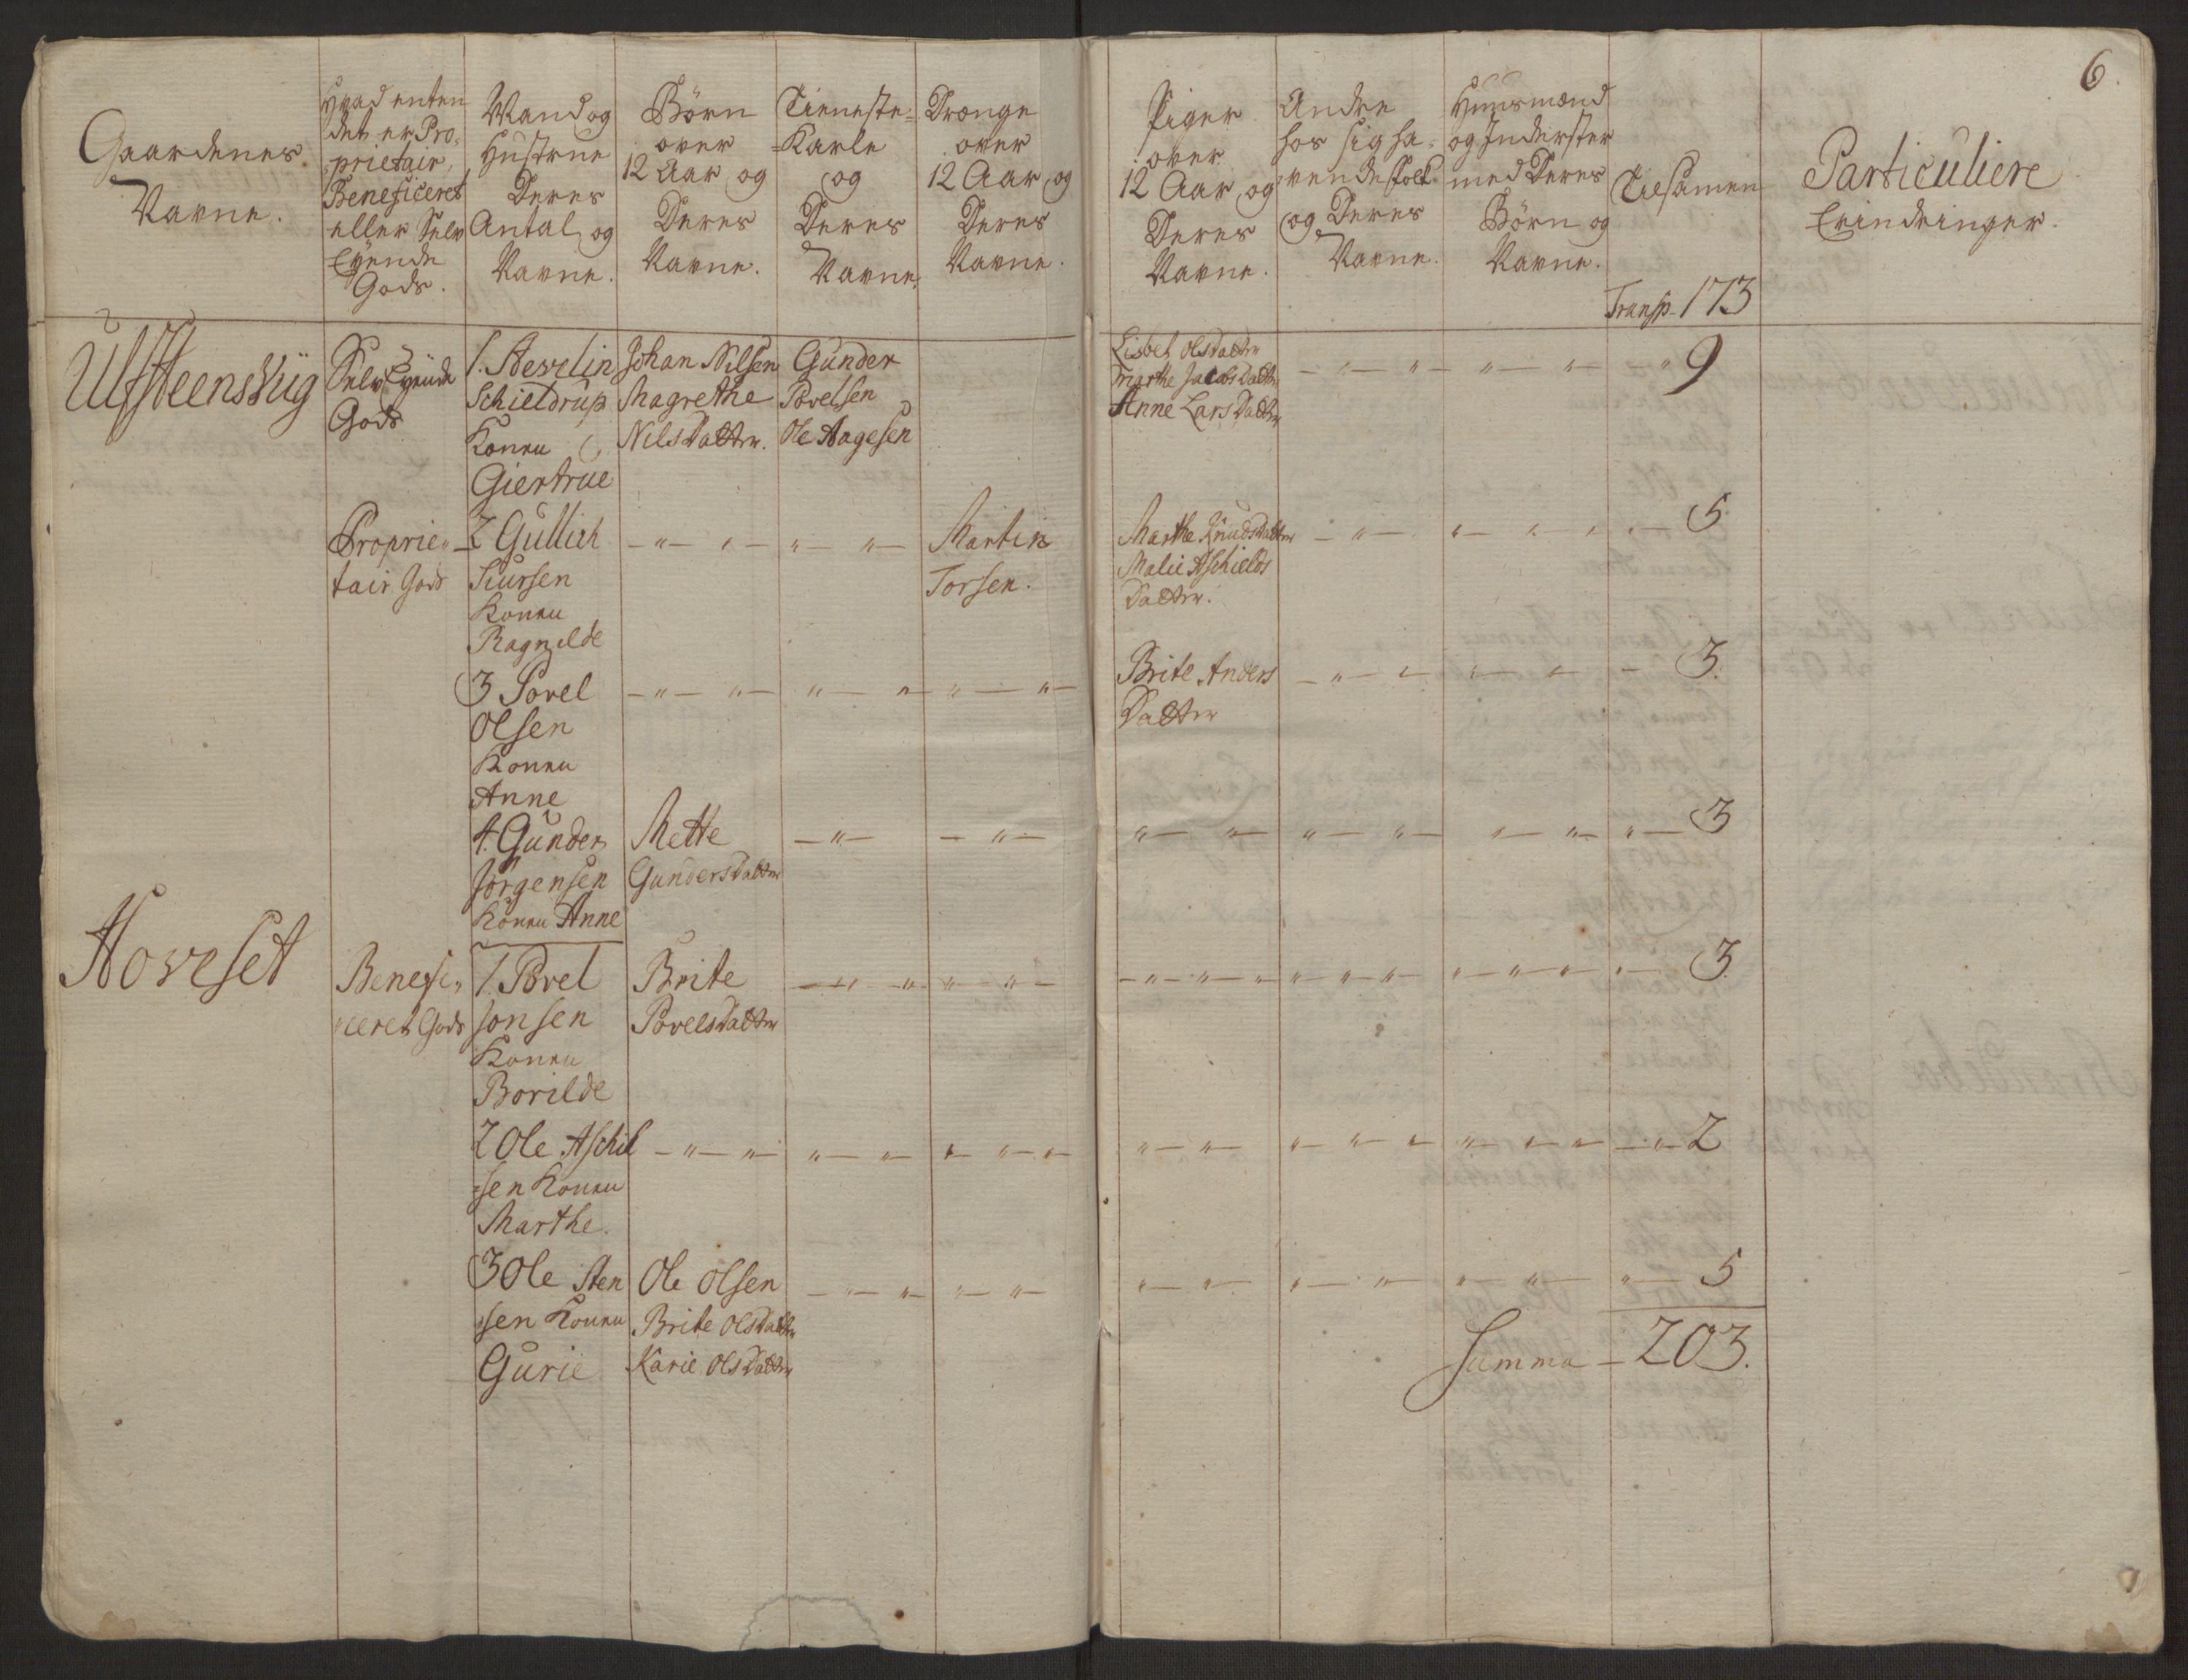 6.
Gaardenes
Navne.
Hvad enten
det er Pro-
prietair,
Beneficeret
eller Selv
Eyende
Gods.
Mand og
Hustrue
Deres
Antal og
Navne.
Børn
over
12 Aar og
Deres
Navne.
Tieneste-
Karle
og
Deres
Navne.
Drænge
over
12 Aar og
Deres
Navne.
Piger
over
12 Aar og
Deres
Navne.
Andre
hos sig ha-
vende Folk
og Deres
Navne.
Huusmænd
og Inderster
med Deres
Børn og
Navne.
Tilsamen
Particuliere
Erindringer.
Transp. 173
Ulfsteensvüg
Selv Eyende
Gods
1.
Schieldrup
Konen
Giertrue
Johan Nilsen
Magrethe
Nils Datter.
Gunder
Povelsen
Ole Aagesen
Lisbet Ols Datter
Marthe Jacobs Datter
Anne Lars Datter
9
Proprie-
tair Gods
2 Gullich
Siursen
Konen
Ragnilde
Martin
Torsen.
Marthe Knuds Datter
Malie Aschields
Datter.
5
3 Povel
Olsen
Konen
Anne
Brite Anders
Datter
3.
4. Gunder
Jørgensen
Konen Anne
Mette
Gunders Datter
3
Hoveset
Benefi-
ceret Gods
1. Povel
Jonsen
Konen
Borilde
Brite
Povels Datter
3.
2 Ole Aschil
sen Konen
Marthe.
2
3 Ole Sten
sen Konen
Gurie
Ole Olsen
Brite Ols Datter
Karie Ols Datter
5
Summa - 203.